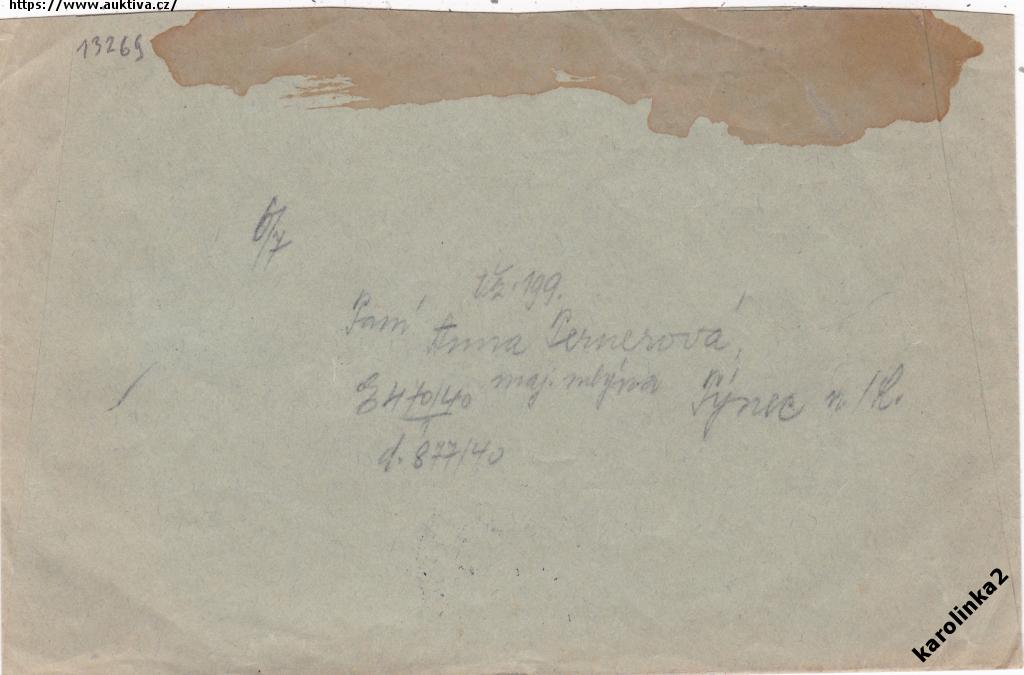 https://www.auktiva.cz/
13269
6/7
199.
Paní
Anna Pernerová,
maj. mlýna
Týnec n./L.
E 470/40
č. 877/40
karolinka2